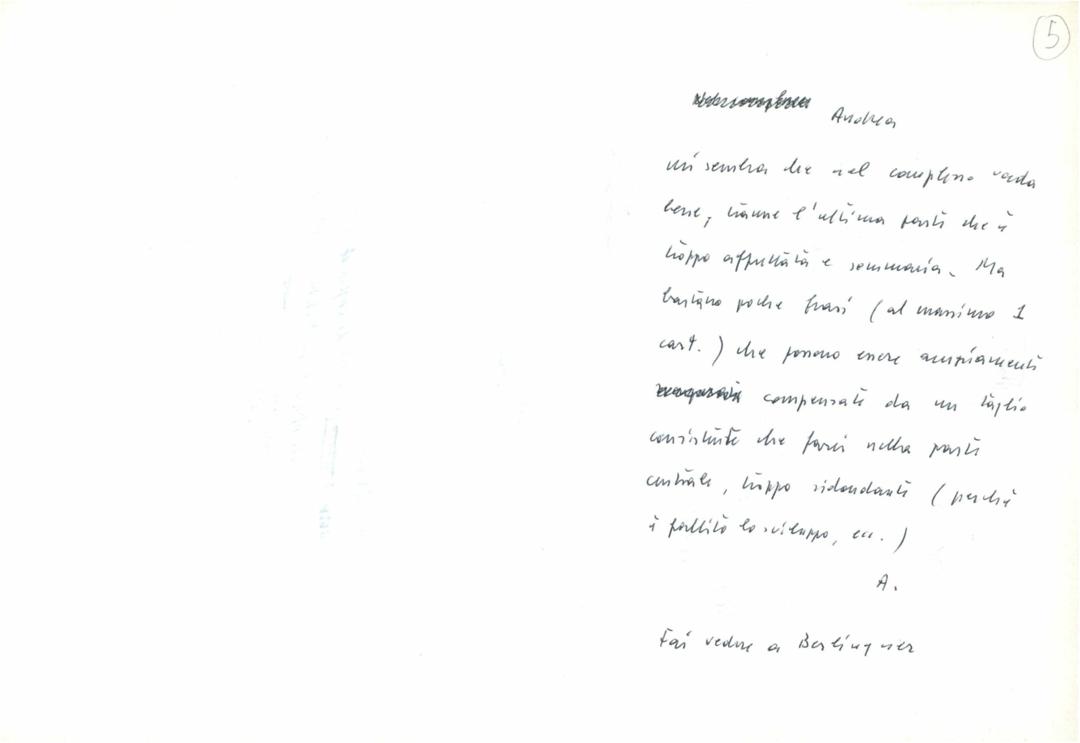 5
Andrea
mi sembra che nel complesso vada
bene, tranne l'ultima parte che è
troppo affrettata e sommaria. Ma
bastano poche frasi (al massimo 1
cart.) che possono essere ampiamente
compensate da un taglio
consistente che farei nella parte
centrale, troppo ridondante (perché
è fallito lo sviluppo, ecc.)
A.
Fai vedere a Berlinguer